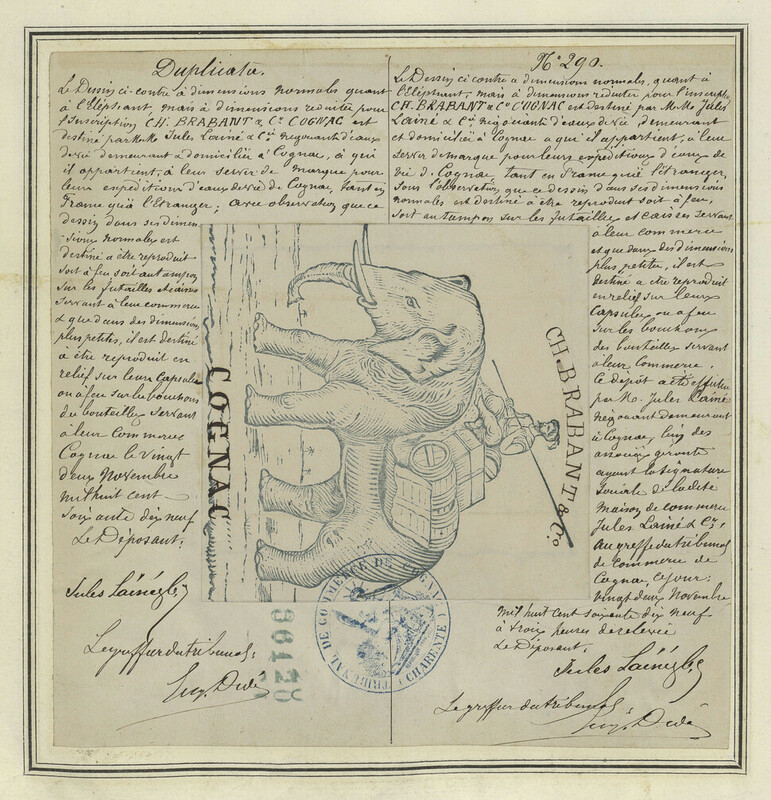 Duplicata.
Le Dessin ci-contre à dimensions normales quant
à l'Eléphant, mais à dimensions reduites pour
l'inscription CH. BRABANT & Cº COGNAC est
destiné par MrMs Jules Lainé & Cie négociants d'eaux
de vie demeurant & domiciliés à Cognac, à qui
il appartient, à leur servir de marque pour
leurs expéditions d'eaux de vie de Cognac, tant en
France qu'à l'Etranger; avec observation que ce
dessin dans ses dimen
sions normales est
destiné a être reproduit
soit à feu soit au tampon
sur les futailles et caisses
servant à leur commerce
& que dans des dimensions
plus petites, il est destiné
à être reproduit en
relief sur leurs Capsules
ou à feu sur les bouchons
de bouteilles servant
à leur commerce
Cognac le vingt
deux Novembre
mil huit cent
soixante dix neuf
Le Déposant.
Jules Lainé & Cie
Le greffier du tribunal:
Nº 290.
Le Dessin ci contre a dimensions normales, quant à
l'Eléphant, mais à dimensions reduites pour l'inscripton
CH. BRABANT & Cº COGNAC est destiné par MrMs Jules
Lainé & Cie négociants d'eaux de vie, demeurant
et domiciliés à Cognac a qui il appartient, à leur
servir de marque pour leurs expéditions d'eaux de
vie de Cognac, tant en France qu'à l'étranger,
sous l'observation que ce dessin dans ses dimensions
normales est destiné à être reproduit soit à feu,
soit au tampon sur les futailles et caisses servant
à leur commerce
et que dans des dimensions
plus petites, il est
destiné a être reproduit
en relief sur leurs
capsules ou a feu
sur les bouchons
des bouteilles servant
à leur Commerce.
Ce dépôt a été effectué
par M. Jules Lainé
négociant demeurant
à Cognac, l'un des
associés gerants
ayant la signature
sociale de la dite
maison de commerce
Jules Lainé & Cie,
au greffe du tribunal
de Commerce de
Cognac, ce jour:
vingt deux Novembre
mil huit cent soixante dix neuf
à trois heures de relevée
Le Déposant.
Jules Lainé & Cie
Le greffier du tribunal
CH. BRABANT & Co
COGNAC
86128
TRIBUNAL DE COMMERCE DE COGNAC
CHARENTE